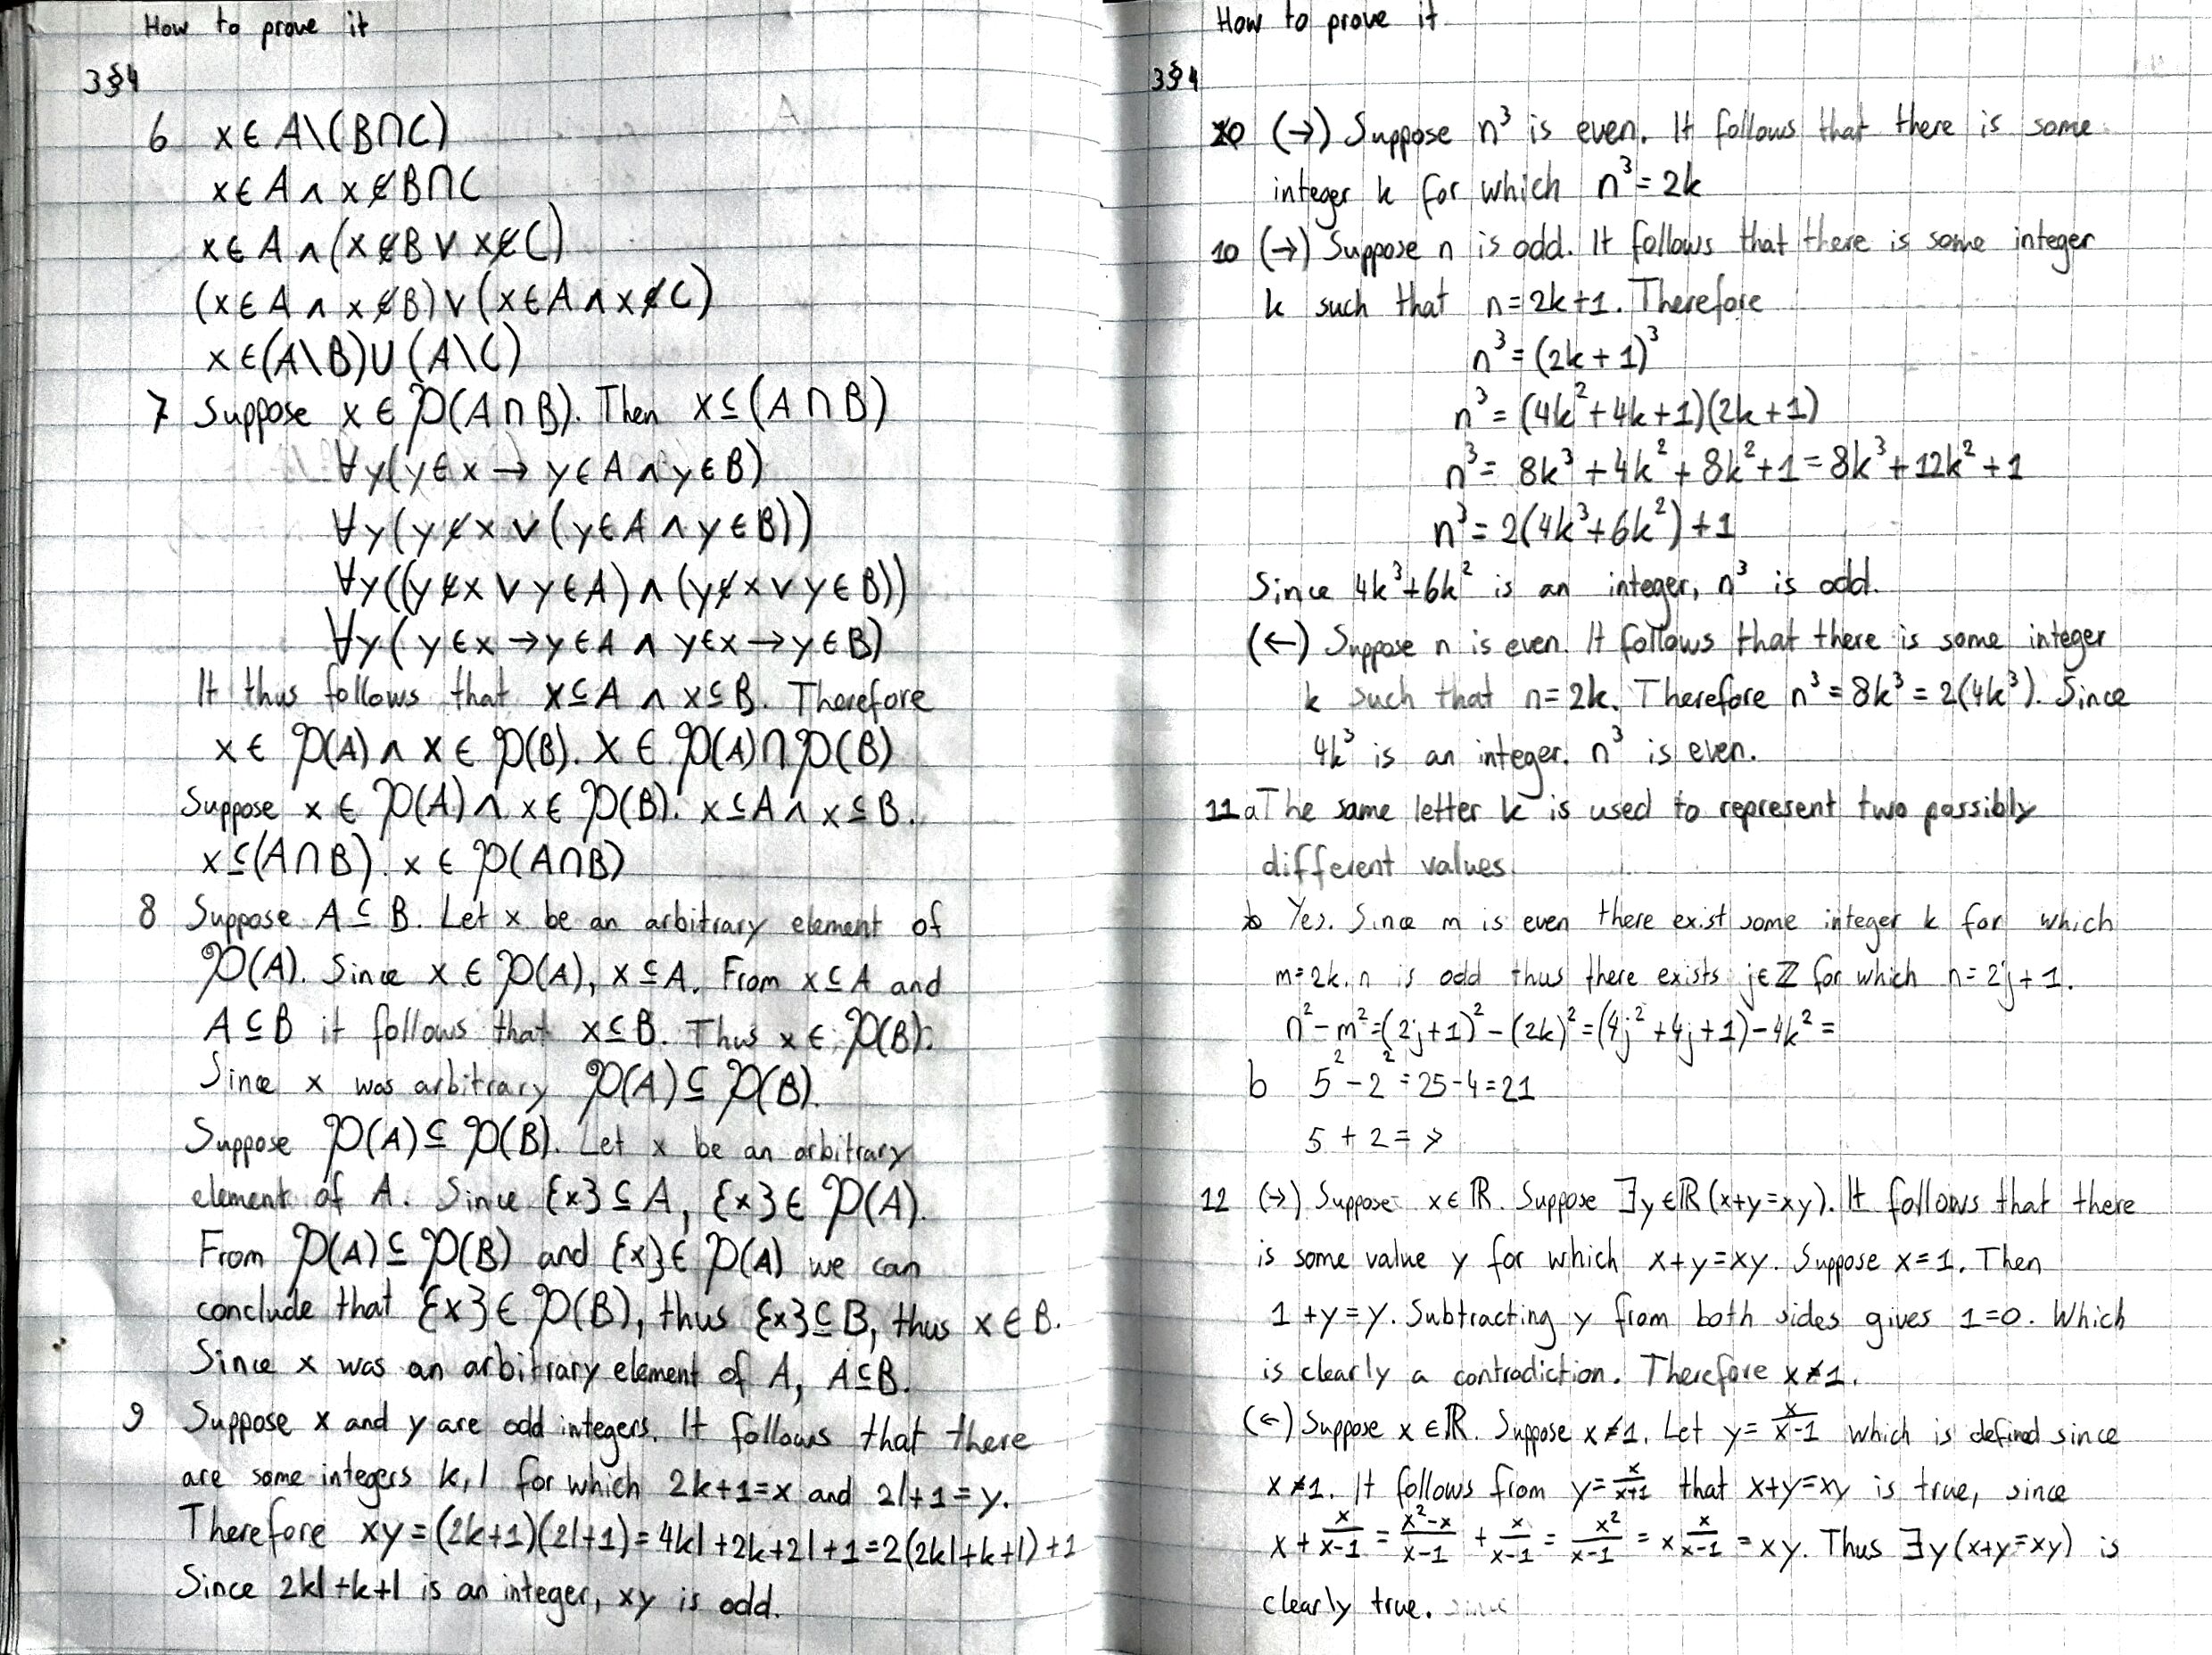 How to prove it
3§4
6 x ∈ A\(B∩C)
x ∈ A ∧ x ∉ B∩C
x ∈ A ∧ (x ∉ B ∨ x ∉ C)
(x ∈ A ∧ x ∉ B) ∨ (x ∈ A ∧ x ∉ C)
x ∈ (A\B)∪(A\C)
7 Suppose x ∈ P(A∩B). Then x ⊆ (A∩B)
∀y(y ∈ x → y ∈ A ∧ y ∈ B)
∀y(y ∉ x ∨ (y ∈ A ∧ y ∈ B))
∀y((y ∉ x ∨ y ∈ A) ∧ (y ∉ x ∨ y ∈ B))
∀y(y ∈ x → y ∈ A ∧ y ∈ x → y ∈ B)
It thus follows that x ⊆ A ∧ x ⊆ B. Therefore
x ∈ P(A) ∧ x ∈ P(B). x ∈ P(A)∩P(B)
Suppose x ∈ P(A) ∧ x ∈ P(B). x ⊆ A ∧ x ⊆ B.
x ⊆ (A∩B). x ∈ P(A∩B)
8 Suppose A ⊆ B. Let x be an arbitrary element of
P(A). Since x ∈ P(A), x ⊆ A. From x ⊆ A and
A ⊆ B it follows that x ⊆ B. Thus x ∈ P(B).
Since x was arbitrary P(A) ⊆ P(B).
Suppose P(A) ⊆ P(B). Let x be an arbitrary
element of A. Since {x} ⊆ A, {x} ∈ P(A).
From P(A) ⊆ P(B) and {x} ∈ P(A) we can
conclude that {x} ∈ P(B), thus {x} ⊆ B, thus x ∈ B.
Since x was an arbitrary element of A, A ⊆ B.
9 Suppose x and y are odd integers. It follows that there
are some integers k, l for which 2k+1=x and 2l+1=y.
Therefore xy = (2k+1)(2l+1) = 4kl+2k+2l+1 = 2(2kl+k+l)+1
Since 2kl+k+l is an integer, xy is odd.
How to prove it
3§4
10 (→) Suppose n³ is even. It follows that there is some
integer k for which n³ = 2k
10 (→) Suppose n is odd. It follows that there is some integer
k such that n=2k+1. Therefore
n³ = (2k+1)³
n³ = (4k²+4k+1)(2k+1)
n³ = 8k³+4k²+8k²+1 = 8k³+12k²+1
n³ = 2(4k³+6k²)+1
Since 4k³+6k² is an integer, n³ is odd.
(←) Suppose n is even. It follows that there is some integer
k such that n=2k. Therefore n³ = 8k³ = 2(4k³). Since
4k³ is an integer. n³ is even.
11 a The same letter k is used to represent two possibly
different values.
b Yes. Since m is even there exist some integer k for which
m=2k. n is odd thus there exists j∈ℤ for which n=2j+1.
n²-m² = (2j+1)²-(2k)² = (4j²+4j+1)-4k² =
b 5²-2² = 25-4 = 21
5+2=7
12 (→) Suppose x ∈ ℝ. Suppose ∃y∈ℝ(x+y=xy). It follows that there
is some value y for which x+y=xy. Suppose x=1. Then
1+y=y. Subtracting y from both sides gives 1=0. Which
is clearly a contradiction. Therefore x≠1.
(←) Suppose x ∈ ℝ. Suppose x≠1. Let y = x/(x-1) which is defined since
x≠1. It follows from y = x/(x-1) that x+y=xy is true, since
x + x/(x-1) = (x²-x)/(x-1) + x/(x-1) = x²/(x-1) = x x/(x-1) = xy. Thus ∃y(x+y=xy) is
clearly true. since